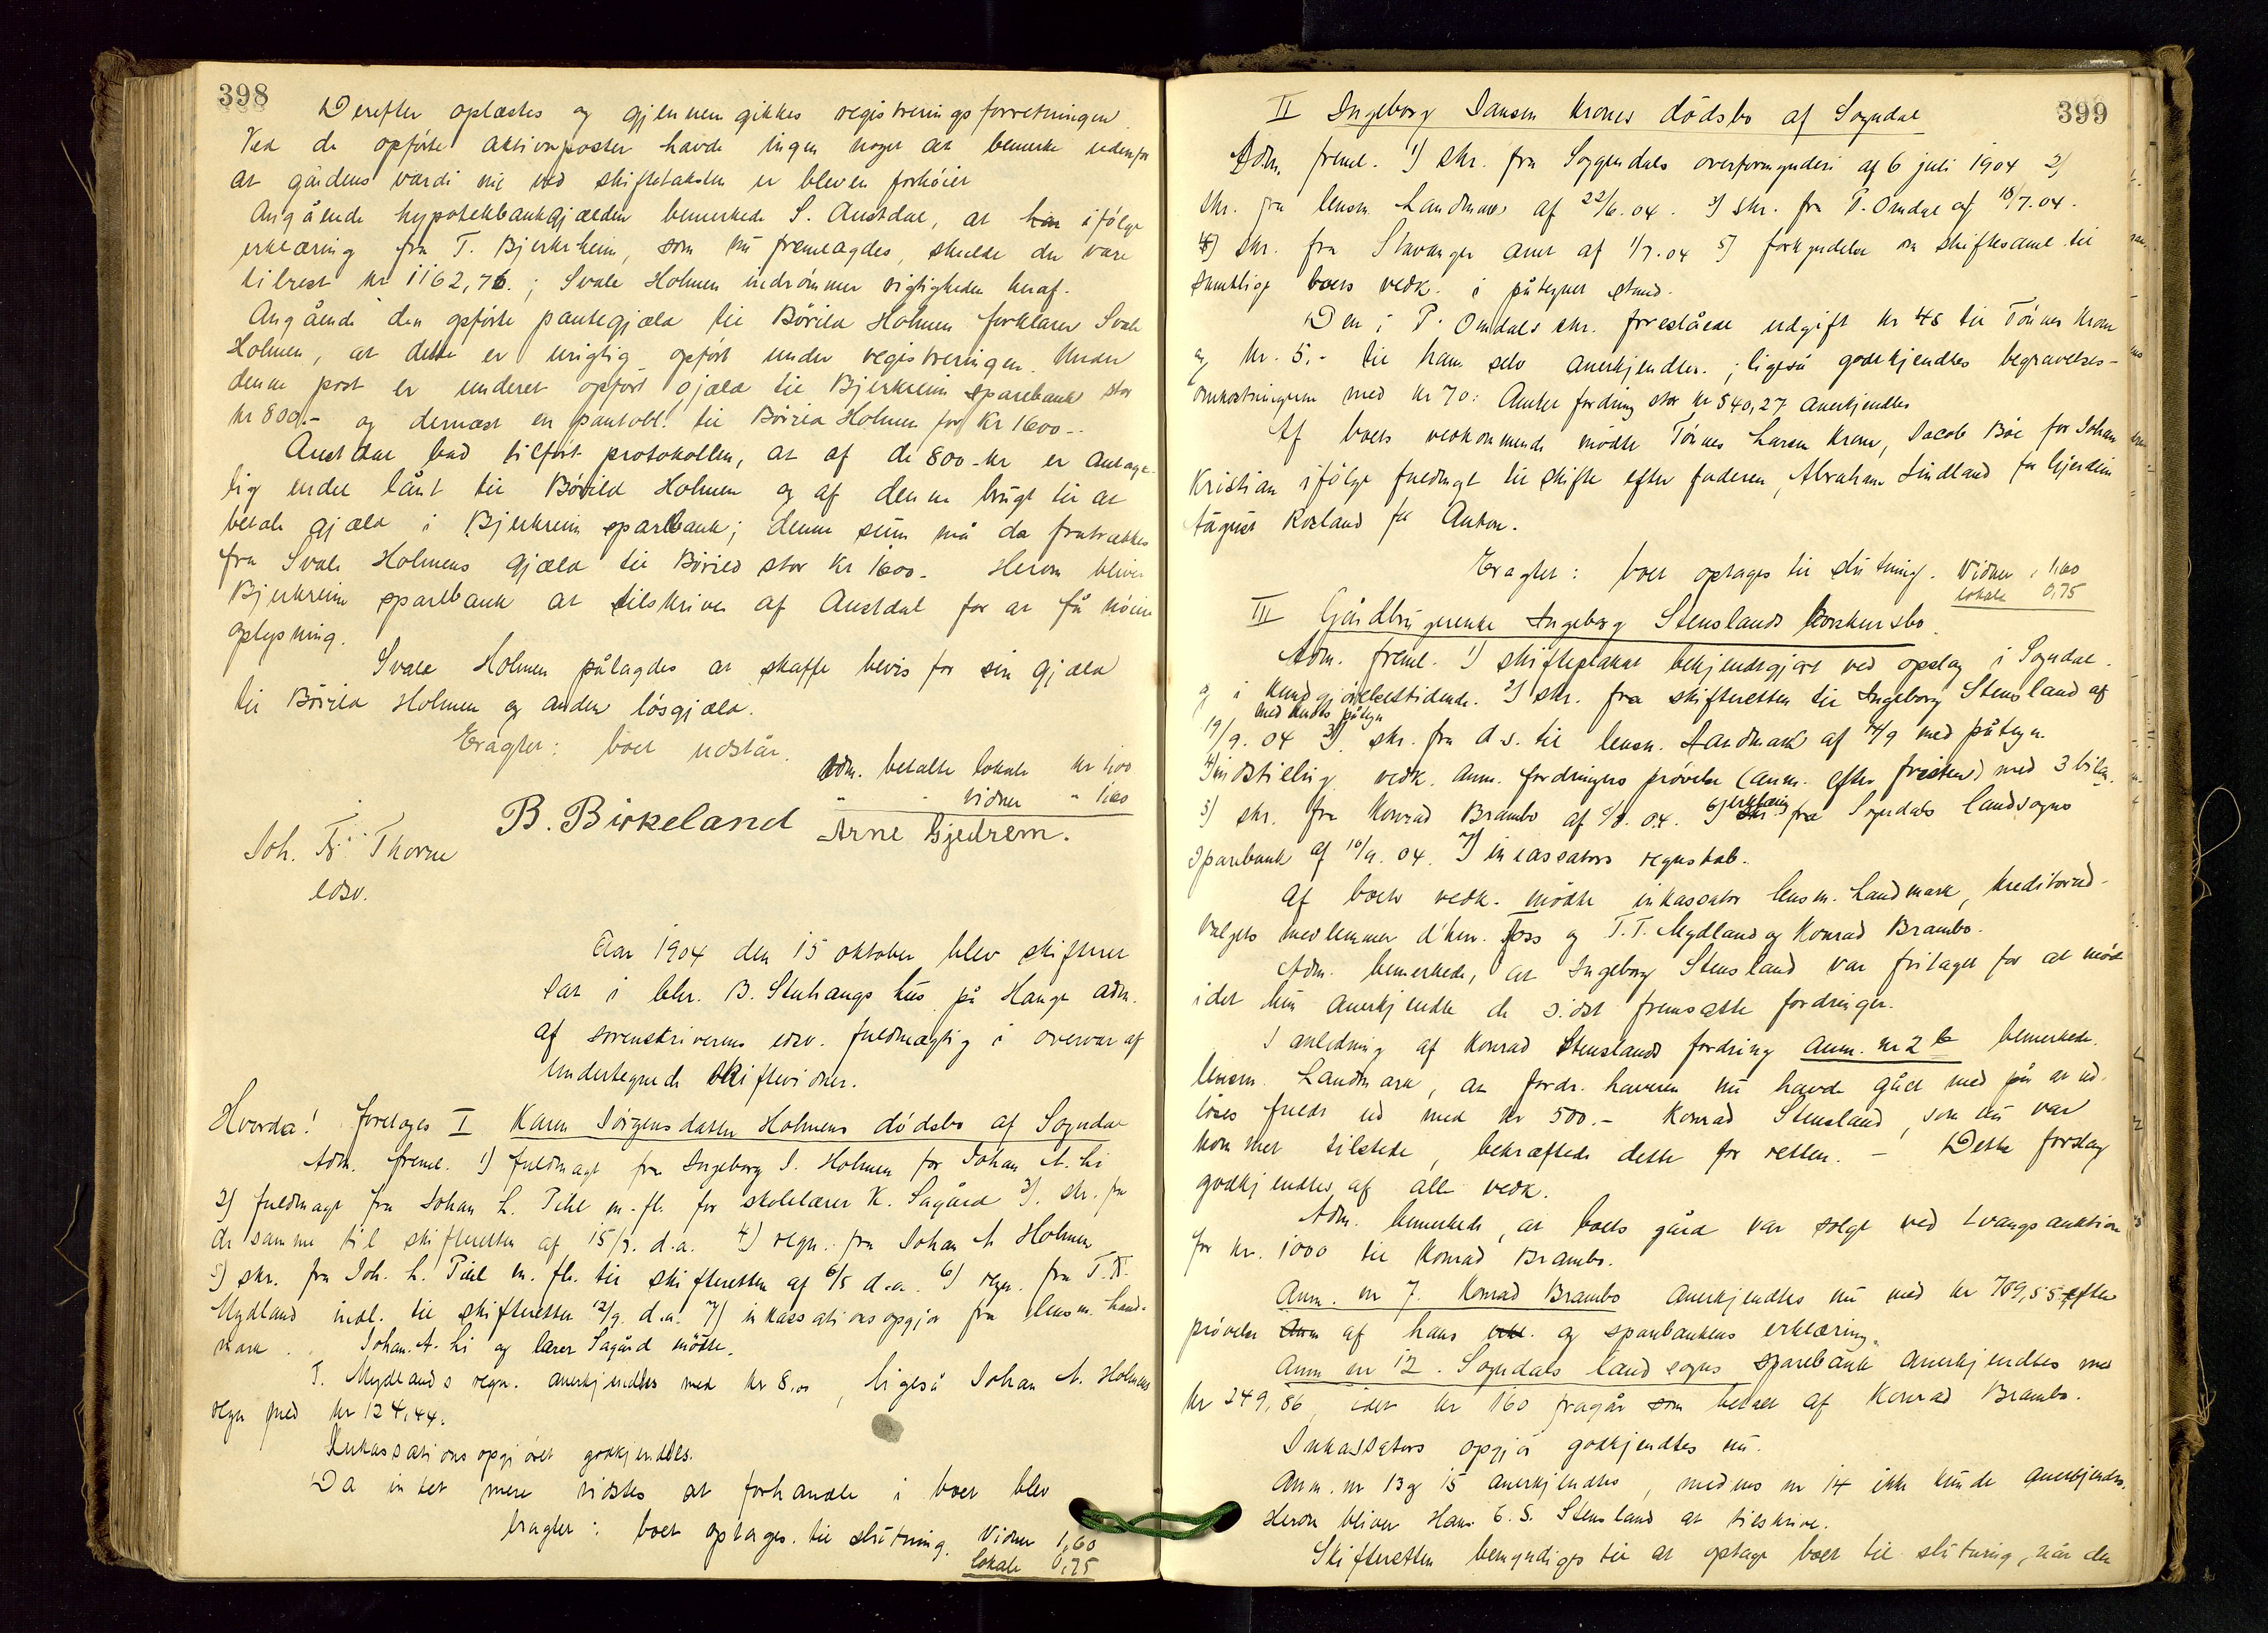 398
Derefter oplæstes og gjennemgikkes registreringsforretningen
Ved de opførte aktivaposter havde ingen noget at bemerke udenfor
at gårdens værdi nu ved skiftetaksten er bleven forhøiet
Angående hypotekbankgjælden bemerkede S. Austdal, at han ifølge
erklæring fra T. Bjerkrheim, som nu fremlagdes, skulde der være
tilrest kr 1162,76.; Svale Holmen indrømmer rigtigheden heraf.
Angående den opførte pantegjæld til Børild Holmen forklarer Svale
Holmen, at dette er urigtig opført under registreringen. Under
denne post er underet opført gjæld til Bjerkreim sparebank stor
kr 800.- og dernæst en pantobl. til Børild Holmen for kr 1600.-
Austdal bad tilført protokollen, at af de 800 kr er antage-
lig endel lånt til Børild Holmen og af denne brugt til at
betale gjæld i Bjerkreim sparebank; denne sum må da fratrækkes
fra Svale Holmens gjæld til Børild stor kr 1600.- Herom bliver
Bjerkreim sparebank at tilskrive af Austdal for at få nøiere
oplysning.
Svale Holmen pålagdes at skaffe bevis for sin gjæld
til Børild Holmen og anden løsgjæld.
Eragtet: boet udstår.
Adm. betalte lokale kr 1,00
" " vidner " 1,60
B. Birkeland Arne Gjedrem.
Joh. Fr. Thorne
edsv.
Aar 1904 den 15 oktober blev skifteret
sat i lehr. B. Stuhaugs hus på Hauge adm.
af sorenskriverens edsv. fuldmægtig i overvær af
undertegnede skiftevidner.
Hvorda! foretoges I Karen Jörgensdatter Holmens dødsbo af Sogndal
Adm. freml. 1) fuldmagt fra Ingeborg J. Holmen for Johan A. Li
2) fuldmagt fra Johan L. Pihl m. fl. for skolelærer K. Sagård 3). skr. fra
de samme til skifteretten af 15/7. d.a. 4) regn. fra Johan A. Holmen
5) skr. fra Joh. L. Pihl m. fl. til skifteretten af 6/8 d.a. 6) regn. fra T. T.
Mydland indl. til skifteretten 12/9. d.a. 7) inkassationsopgjør fra lensm. Land-
mark. Johan A. Li og lærer Sagård mødte.
T. Mydlands regn. anerkjendtes med kr 8.00, ligeså Johan A. Holmens
regn med kr 124,44.
Inkassationsopgjøret godkjendtes.
Da intet mere vidstes at forhandle i boet blev
eragtet: boet optages til slutning. Vidner 1,60
lokale 0,75
399
II Ingeborg Jansen Krones dødsbo af Sogndal
Adm. freml. 1) skr. fra Soggendals overformynderi af 6 juli 1904 2)
skr. fra lensm. Landmark af 22/6. 04. 3) skr. fra P. Omdal af 18/7. 04.
4) skr. fra Stavanger amt af 1/7. 04 5) forkyndelse om skiftesaml. til
samtlige boets vedk. i påtegnet stand.
Den i P. Omdals skr. foreslåede udgift kr 48 til Tönnes Krone
og kr. 5.- til ham selv anerkjendtes.; ligeså godkjendtes begravelses-
omkostningerne med kr 70: Amtets fordring stor kr 540,27 anerkjendtes
Af boets vedkommende mødte Tönnes Larsen Krone, Jacob Bøe for Johan
Kristian ifølge fuldmagt til skifte efter faderen, Abraham Lindland for Gjerdine
August Rosland for Anton.
Eragtet: boet optages til slutning. Vidner 1,60
lokale 0,75
III Gårdbrugerenke Ingeborg Stenslands konkursbo.
Adm. freml. 1) skifteplakat bekjendtgjort ved opslag i Sogndal
og i Kundgjørelsestidende. 2) skr. fra skifteretten til Ingeborg Stensland af
med hendes påtegn
19/9. 04 3). skr. fra d.s. til lensm. Landmark af 14/9 med påtegn.
4) indstilling vedk. anm. fordringers prøvelse (anm. efter fristen) med 3 bilag.
5) skr. fra Konrad Brambo af 5/8. 04. 6) erklæring fra Sogndals landsogns
Sparebank af 10/9. 04. 7) incassators regnskab.
Af boets vedk. mødte inkassator lensm. Landmark, kreditorud-
valgets medlemmer d'hrr. Foss og T. T. Mydland og Konrad Brambo.
Adm. bemerkede, at Ingeborg Stensland var fritaget for at møde
idet hun anerkjendte de sidst fremsatte fordringer.
I anledning af Konrad Stenslands fordring anm. nr 2 b bemerkede
lensm. Landmark, at fordr. haveren nu havde gået med på at ud-
løses fuldt ud med kr 500.- Konrad Stensland, som nu var
kommet tilstede, bekræftede dette for retten. - Dette forslag
godkjendtes af alle vedk.
Adm. bemerkede, at boets gård var solgt ved tvangsauktion
for kr. 1000 til Konrad Brambo.
Anm. nr 7. Konrad Brambo anerkjendtes nu med kr 709,55 efter
prøvelse af hans og sparebankens erklæring.
Anm nr 12. Sogndals landsogns sparebank anerkjendtes med
kr 249,86, idet kr 160 fragår som betalt af Konrad Brambo.
Inkassators opgjør godkjendtes nu.
Anm. nr 13 og 15 anerkjendtes, medens nr 14 ikke kunde anerkjendes.
Herom bliver Hans E. S. Stensland at tilskrive.
Skifteretten bemyndiges til at optage boet til slutning, når den